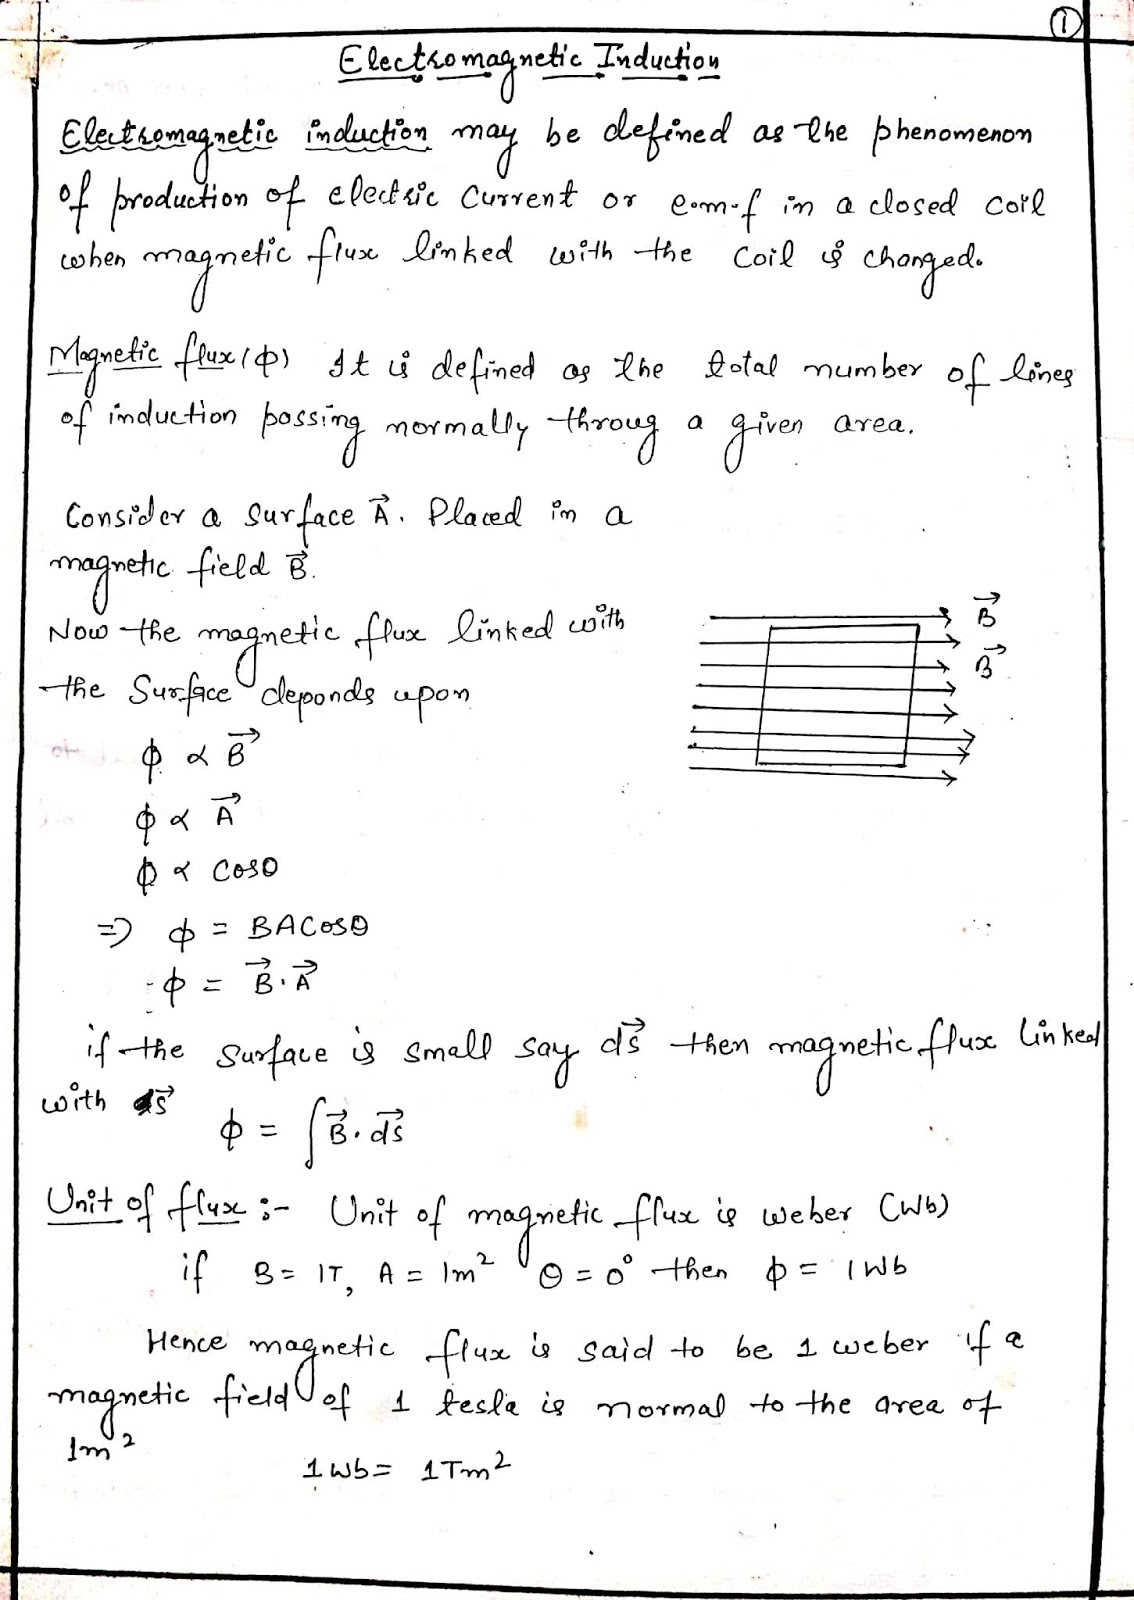 1
Electromagnetic Induction
Electromagnetic induction may be defined as the phenomenon
of production of electric current or e.m.f in a closed coil
when magnetic flux linked with the coil is changed.
Magnetic flux (ϕ) It is defined as the total number of lines
of induction passing normally throug a given area.
Consider a surface A⃗. Placed in a
magnetic field B⃗.
Now the magnetic flux linked with
the Surface deponds upon
B⃗
B⃗
ϕ ∝ B⃗
ϕ ∝ A⃗
ϕ ∝ Cosθ
⇒ ϕ = BACosθ
ϕ = B⃗.A⃗
if the surface is small say ds⃗ then magnetic flux linked
with ds⃗
ϕ = ∫B⃗.ds⃗
Unit of flux :- Unit of magnetic flux is weber (Wb)
if B = 1T, A = 1m² θ = 0° then ϕ = 1Wb
Hence magnetic flux is said to be 1 weber if a
magnetic field of 1 tesla is normal to the area of
1m²
1Wb = 1Tm²